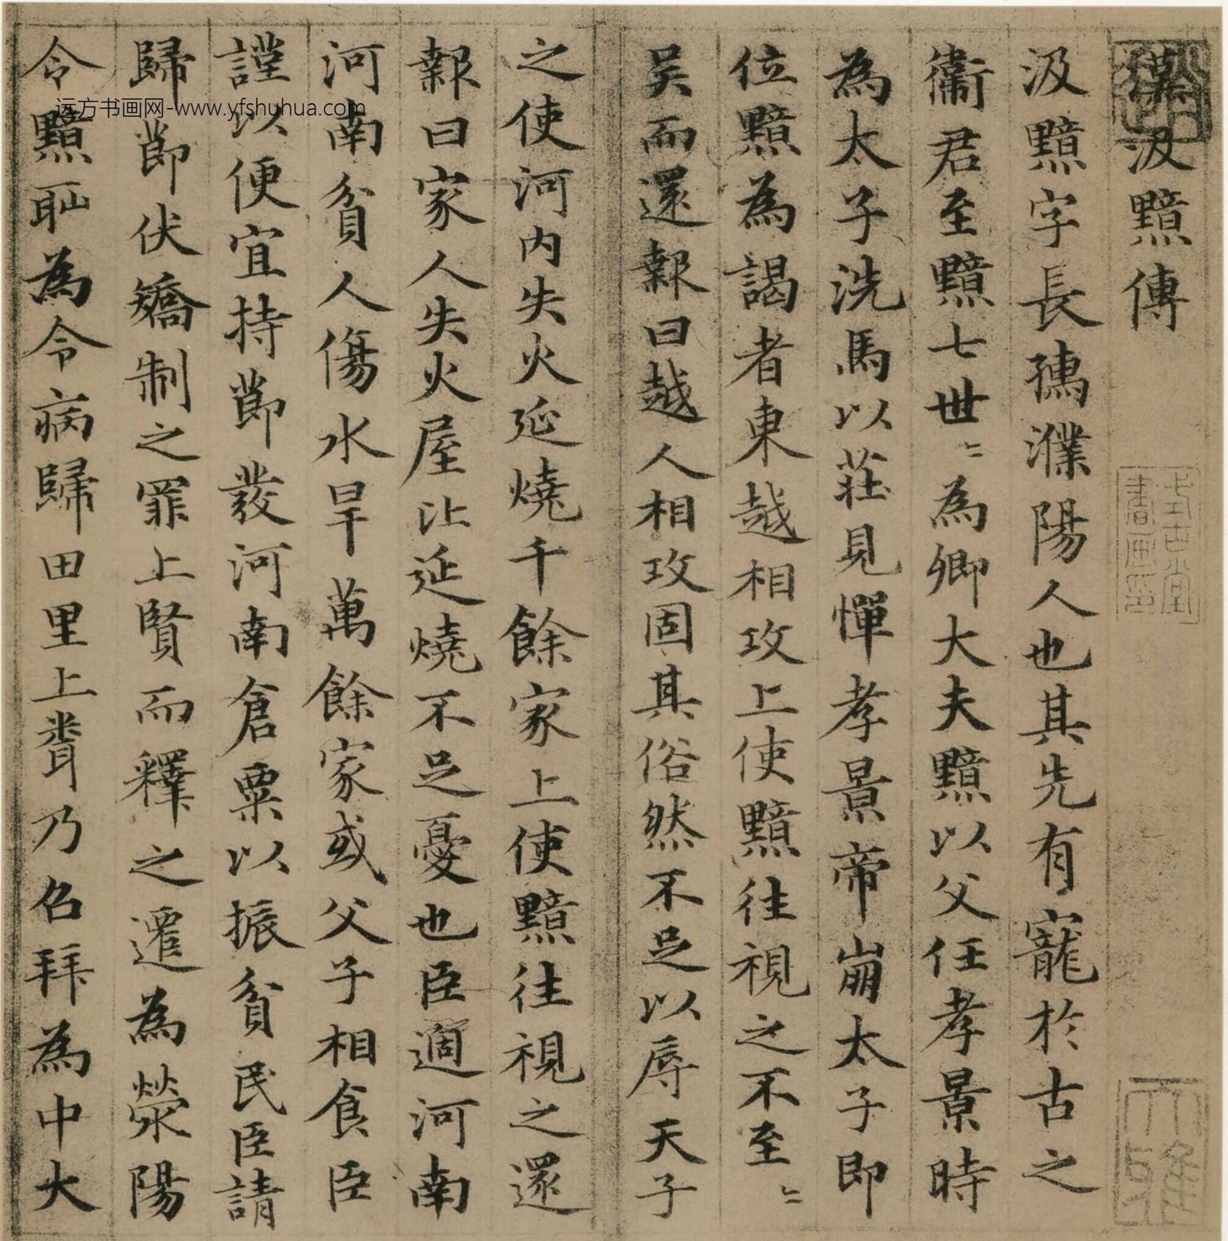 漢汲黯傳
汲黯字長孺濮陽人也其先有寵於古之
衛君至黯七世〻為卿大夫黯以父任孝景時
為太子洗馬以莊見憚孝景帝崩太子即
位黯為謁者東越相攻上使黯往視之不至〻
吴而還報曰越人相攻固其俗然不足以辱天子
之使河内失火延燒千餘家上使黯往視之還
報曰家人失火屋比延燒不足憂也臣適河南
河南貧人傷水旱萬餘家或父子相食臣
謹以便宜持節發河南倉粟以振貧民臣請
歸節伏矯制之罪上賢而釋之遷為滎陽
令黯恥為令病歸田里上聞乃召拜為中大
远方书画网-www.yfshuhua.com